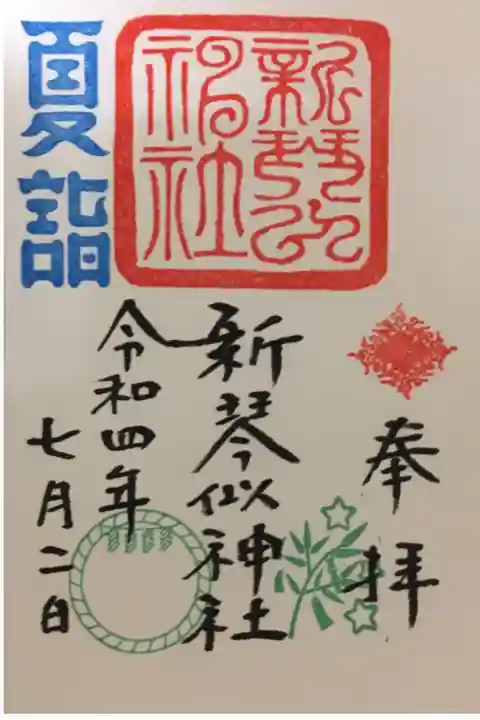 奉拝
新琴似神社
新琴似神社
令和四年
七月二日
夏詣